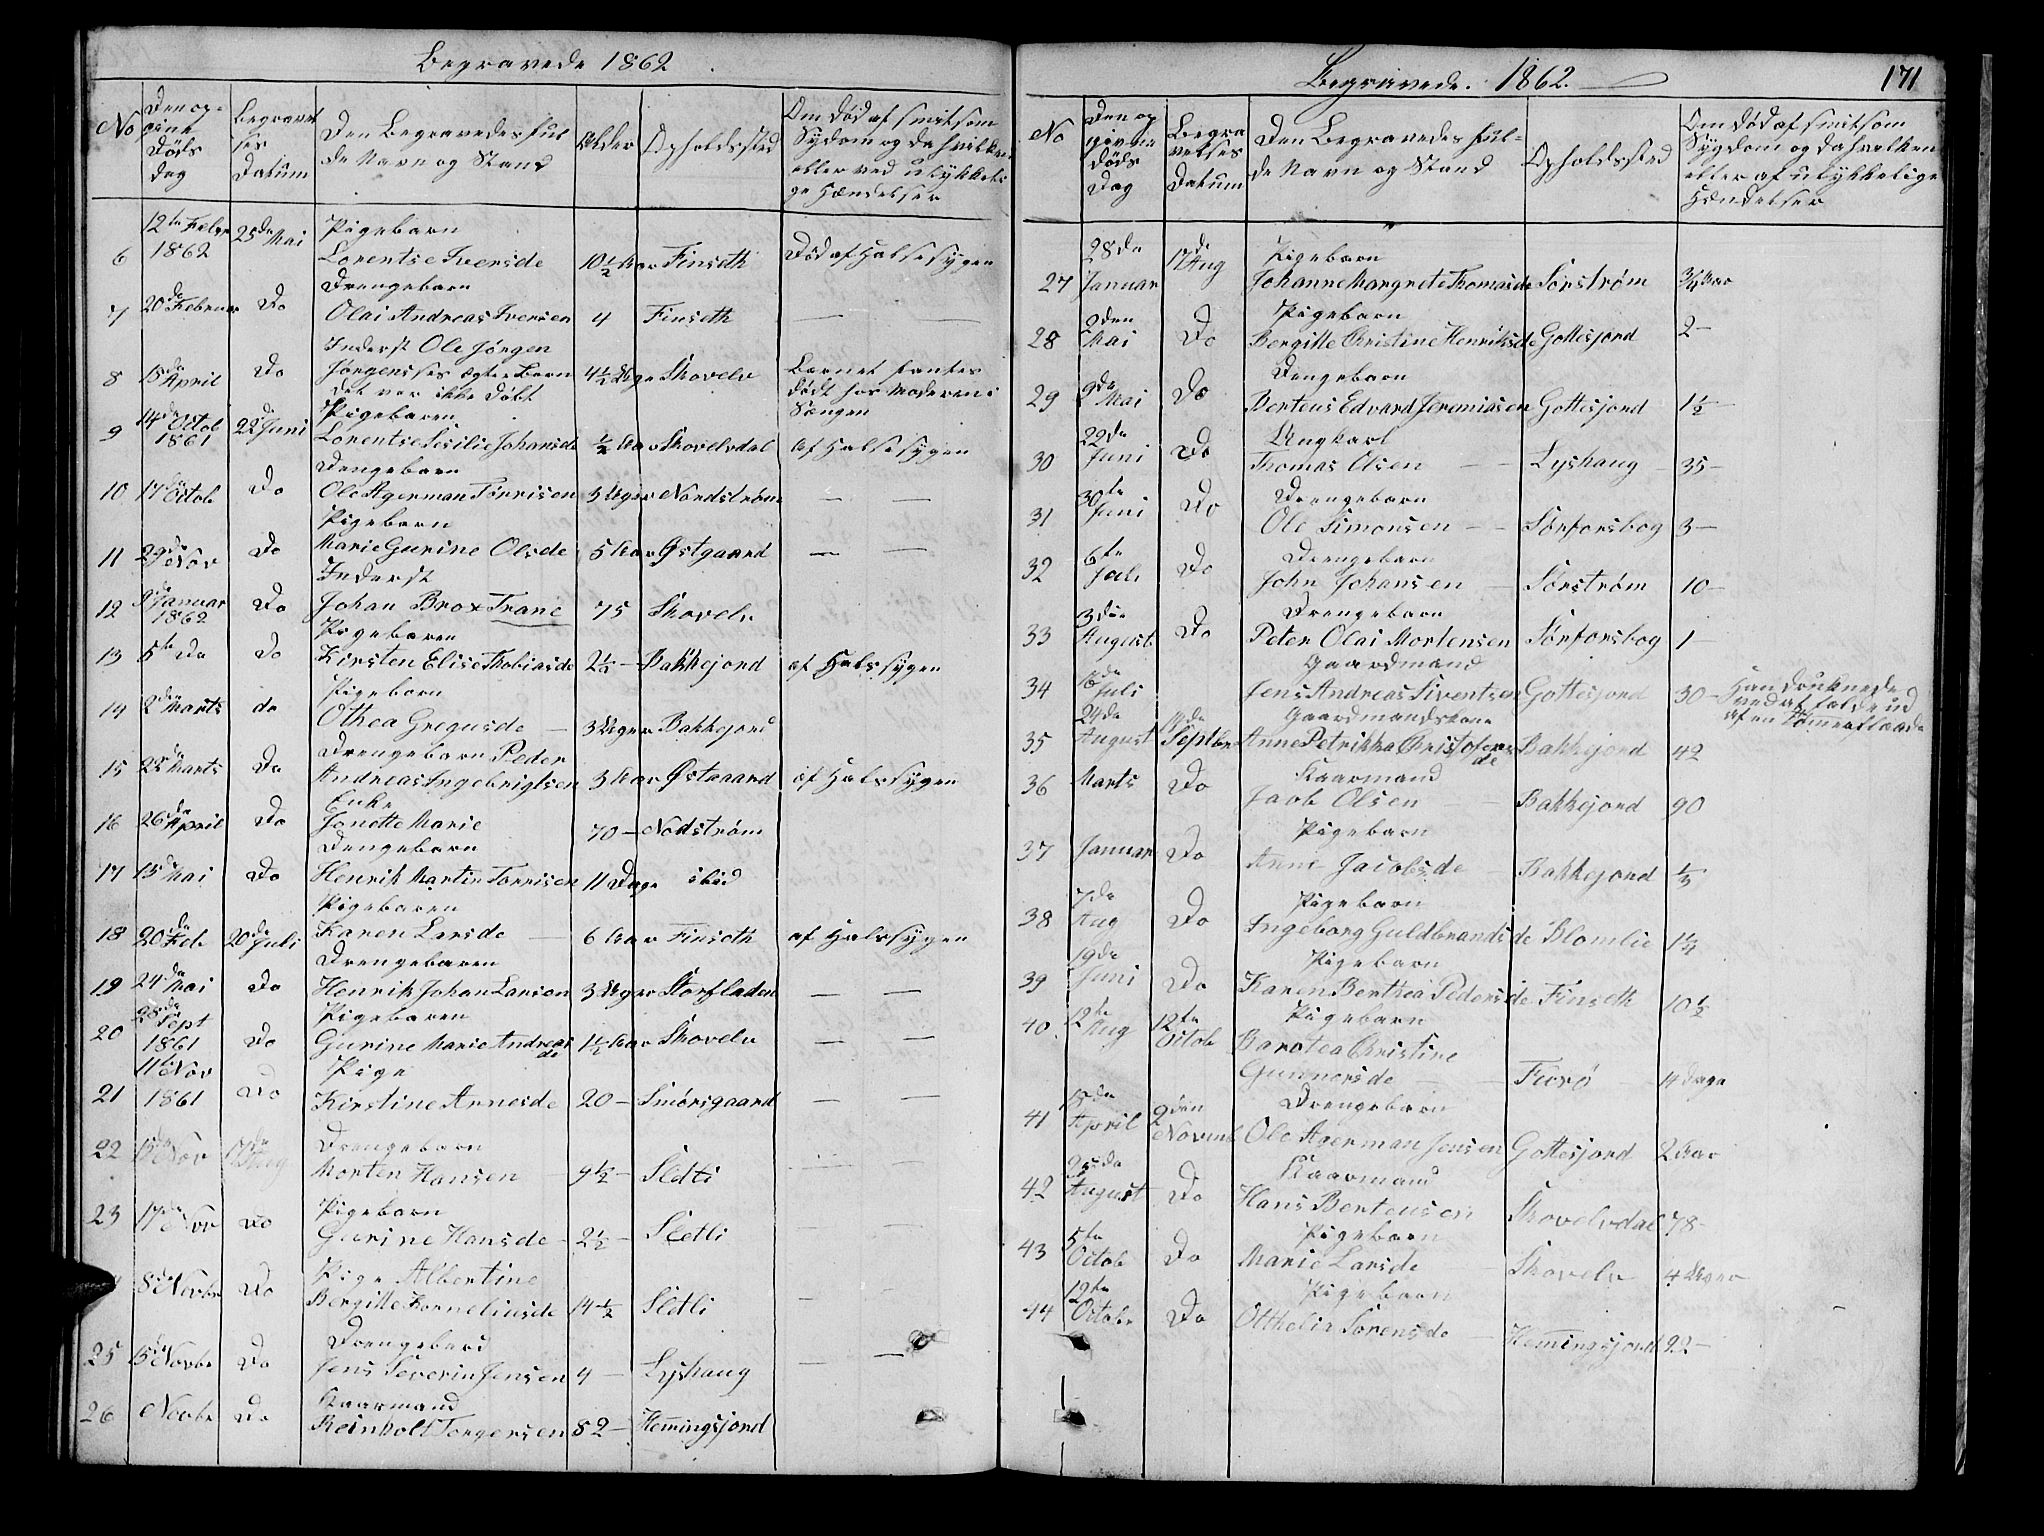 Begravede 1862
No
Den op-
givne
Døds
dag
Begravel
ses
Datum
Den Begravedes ful
de Navn og Stand
Alder
Opholdssted
Om Død af smitsom
Sygdom og da hvilken
eller ved ulykkeli
ge Hændelser
6 12te Febr 1862 25de Mai Pigebarn
Lorentse Iversde 10 1/2 Aar Finseth Død af Halssygen
7 20de Februar Do Drengebarn
Olai Andreas Iversen 4 Finseth — —
8 15de April Do Inderst Ole Jörgen
Jörgenses ægte Barn 4 1/2 Uger Skovelv Barnet fantes
det var ikke døbt dødt hos Moderen i
Sængen
9 14de Octob 1861 22de Juni Pigebaren
Lorentse Sesilie Johansde 1/2 Aar Skovelvdal af Halssygen
10 17de Octob Do Drengebarn
Ole Agerman Tönnisen 3 Uger Nordström — —
11 29de Nov Do Pigebarn
Marie Gurine Olsde 5 Aar Østgaard — —
12 2de Januar 1862 Do Inderst
Johan Brox Trane 75 Skovelv
13 5te Do Do Pigebaren
Kirsten Elise Thobiasde 2 1/4 — Bakkejord af Halssygen
14 2den Marts do Pigebarn
Othea Gregusde — 3 Uger Bakkejord
15 25de Marts Do Drengebarn Peder
Andreas Ingebrigtsen 3 Aar Østgaard af Halssygen
16 26de April Do Enke
Jonette Marie 70 — Nodström
17 13de Mai Do Drengebarn
Henrik Martin Tönnisen 11 Dage ibid
18 20de Feb 20de Juli Pigebaren
Karen Larsde — 6 Aar Finseth af Halssygen
19 24de Mai Do Drengebaren
Henrik Johan Larsen 3 Uger Storfladen — —
20 28de Sept 1861 Do Pigebaren
Gurine Marie Andreas
de 1 1/2 Aar Skovelv — —
21 11te Nov 1861 Do Pige
Kirstine Arnesde 20 — Smörsgaard — —
22 13de Nov 17de Aug Drengebarn
Morten Hansen — 9 1/2 — Sletli — —
23 17de Nov Do Pigebarn
Gurine Hansde — 2 1/2 — Sletli — —
8de Novbr Do Pige Albertine
Bergitte Korneliusde 14 1/2 Sletli — —
25 15de Novbr Do Drengebarn
Jens Severin Jensen 4 — Lyshaug — —
26 Novbr Do Kaarmand
Reinholt Torgersen 82 — Hemingsjord
Begravede. 1862.
171
No
Den op
givne
Døds
Dag
Begra
velses
Datum
Den Begravedes ful-
de Navn og Stand
Opholdssted
Om Død af smitsom
Sygdom og da hvilken
eller af ulykkelige
Hændelser
27 28de Januar 17de Aug Pigebarn
Johanne Margrete Thomasde Sörström 3/4 Aar
28 2den Mai Do Pigebarn
Bergitte Christine Henriksde Gottesjord 2 —
29 9de Mai Do Drengebarn
Berteus Edvard Jeremiasen Gottesjord 1 1/2
30 22de Juni Do Ungkarl
Thomas Olsen — — Lyshaug — 35 —
31 30te Juni Do Drengebarn
Ole Simonsen — — Sørforsbog 3 —
32 6te Juli Do Drengebarn
John Johansen — Sörström 10 —
33 3die August Do Drengebarn
Peter Olai Mortensen Sørforsbog 1 —
34 16de Juli Gaardmand
Jens Andreas Siventsen Gottesjord 30 — Han druknede
ved at falde ud
af en Tömmerflaade
35 24de August 14de Septbr Gaardmandskone
Anne Petrikka Christofers
de Bakkejord 42
36 Marts Do Kaarmand
Jaob Olsen — — Bakkejord 90
37 Januar Do Pigebarn
Anne Jacobsde — Bakkejord 1/3
38 7de Aug Do Pigebarn
Ingeborg Guldbrandsde Blomlie 1 1/4
39 19de Juni Do Pigebarn
Karen Berthea Pedersde Finseth 10 1/2
40 12te Aug 12te Octob Pigebarn
Barotea Christine
Gunnersde — — Furö — 14 Dage
41 18de April 2den Novemb Drengebarn
Ole Agerman Jensen Gottesjord 2 Aar
42 25de August Do Kaarmand
Hans Berteusen Skovelvdal 78 —
43 5te Octob Do Pigebarn
Marie Larsde — — Skovelv 4 Uger
44 12te Octobr Do Pigebarn
Otthelie Sorensde — Hemingsjord 22 —